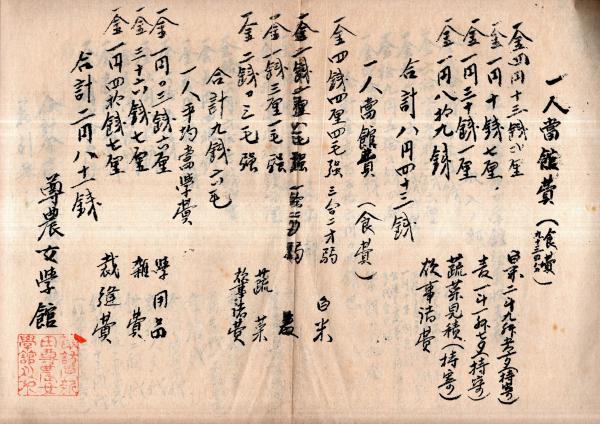 一人當館費（食費
九十三回分）
金四円十三銭八厘
白米二斗九升七夕（持寄）
金一円十銭七厘
麦一斗一升七夕（持寄）
金一円三十銭一厘
蔬菜見積（持寄）
金一円八拾九銭
炊事諸費
合計八円四十三銭
一人當館費（食費）
金四銭四厘四毛強 三合二才弱
白米
麦
金一銭三厘一毛強
蔬菜
金二銭〇三毛強
炊事諸費
合計九銭六毛
一人平均當學費
金一円〇三銭六厘
學用品
金三十六銭七厘
雜費
金一円四拾銭七厘
裁縫費
合計二円八十一銭
尊農女學館